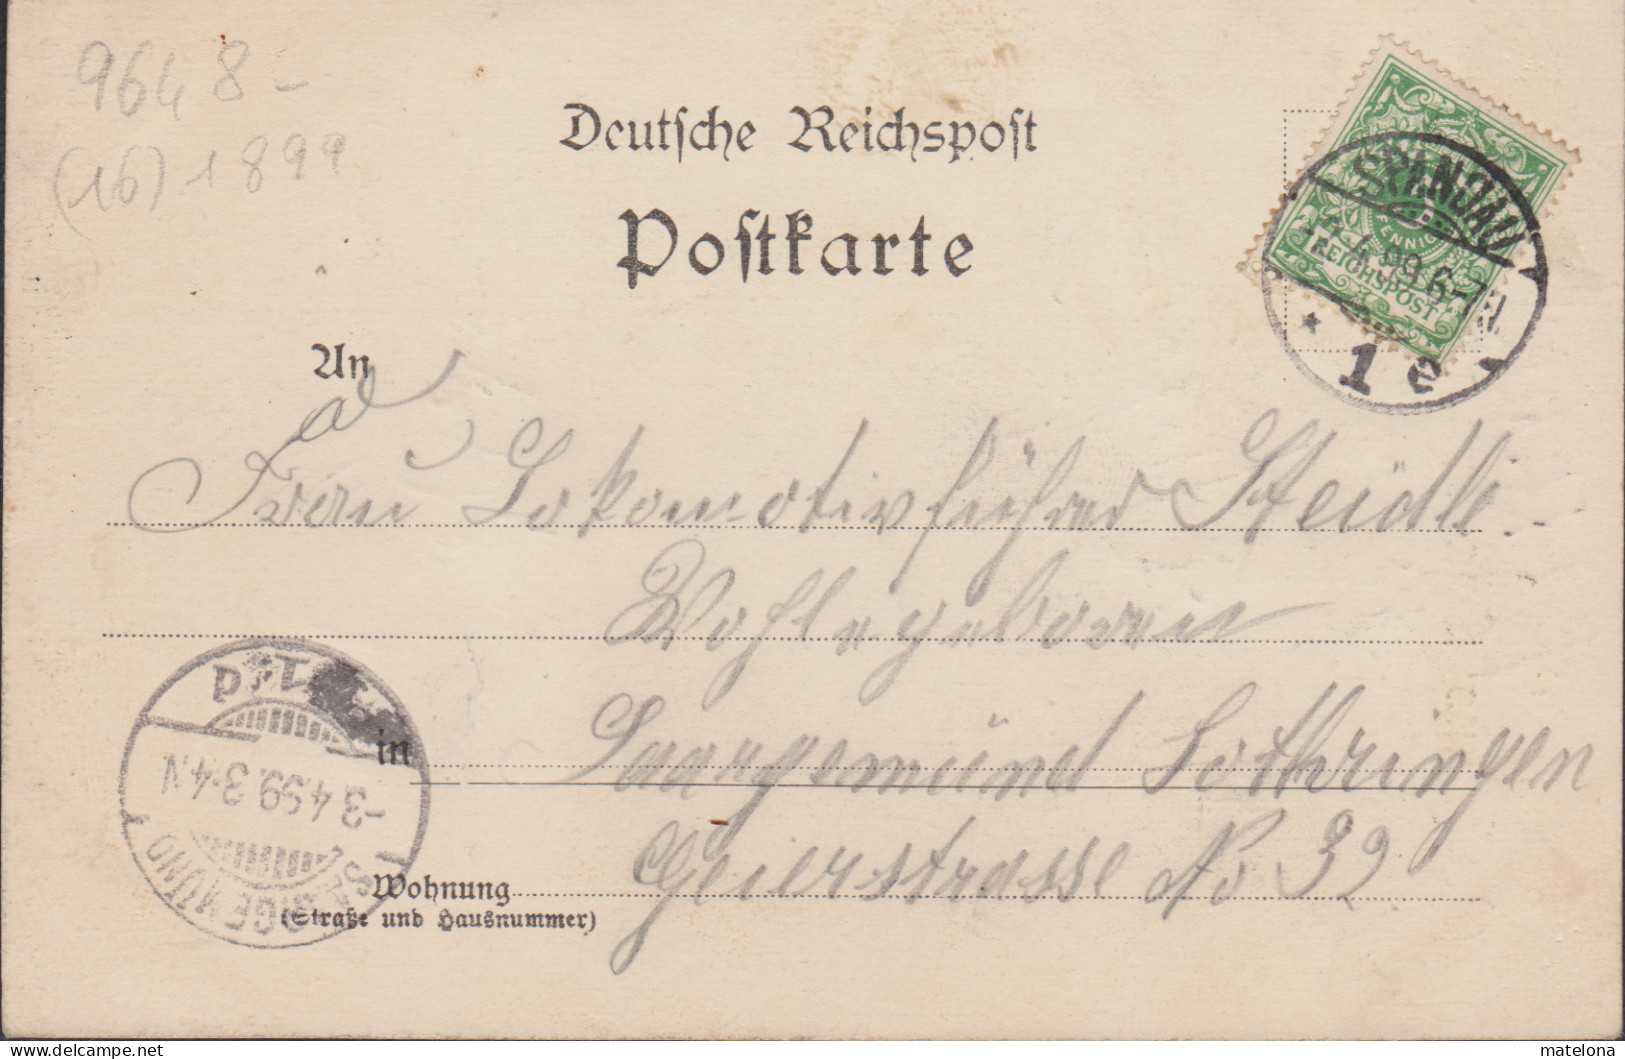 9648-
(16) 1899
Deutsche Reichspost
Postkarte
SPANDAU
4.99.6-7N
* 1 e
PFENNIG
REICHSPOST
An
Frau Lokomotivführer Steidle
Wohlegeboren
in Saargemünd Lothringen
Wohnung Geierstrasse No 32
(Straße und Hausnummer)
SAARGEMÜND
-3.4.99.3-4.N
matelona